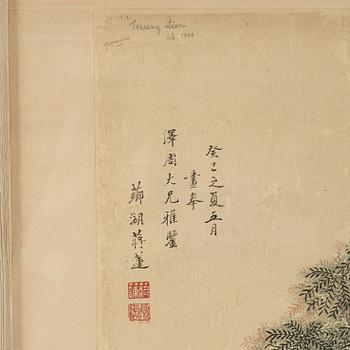 Tseung Lien
癸巳之夏五月
畫奉
澤周大兄雅鑒
薌湖蔣蓮